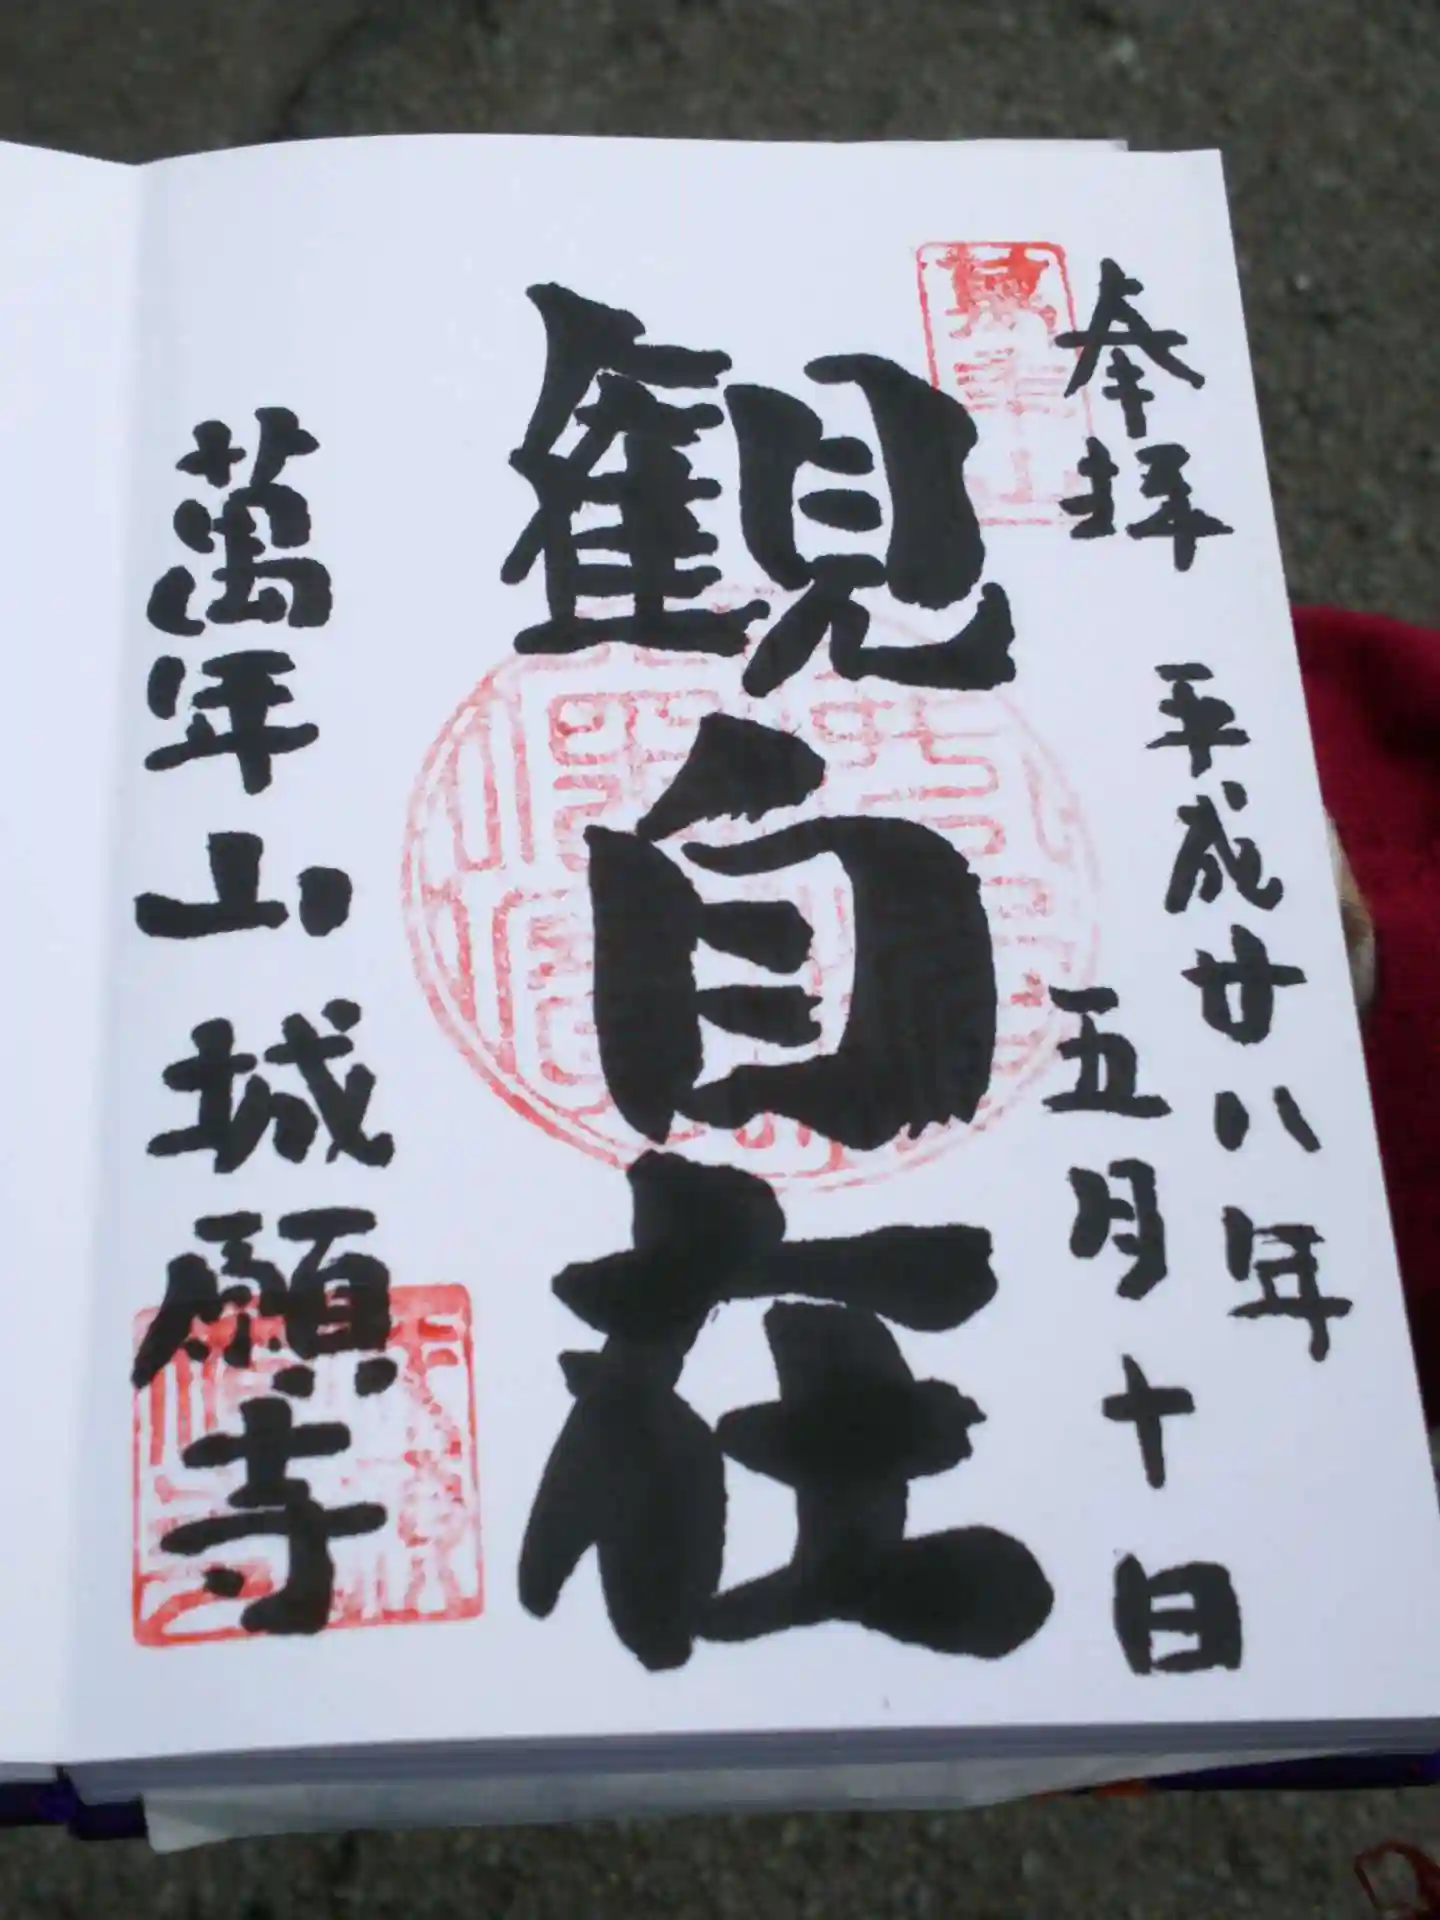 奉拝
平成廿八年
五月十日
観自在
萬年山城願寺